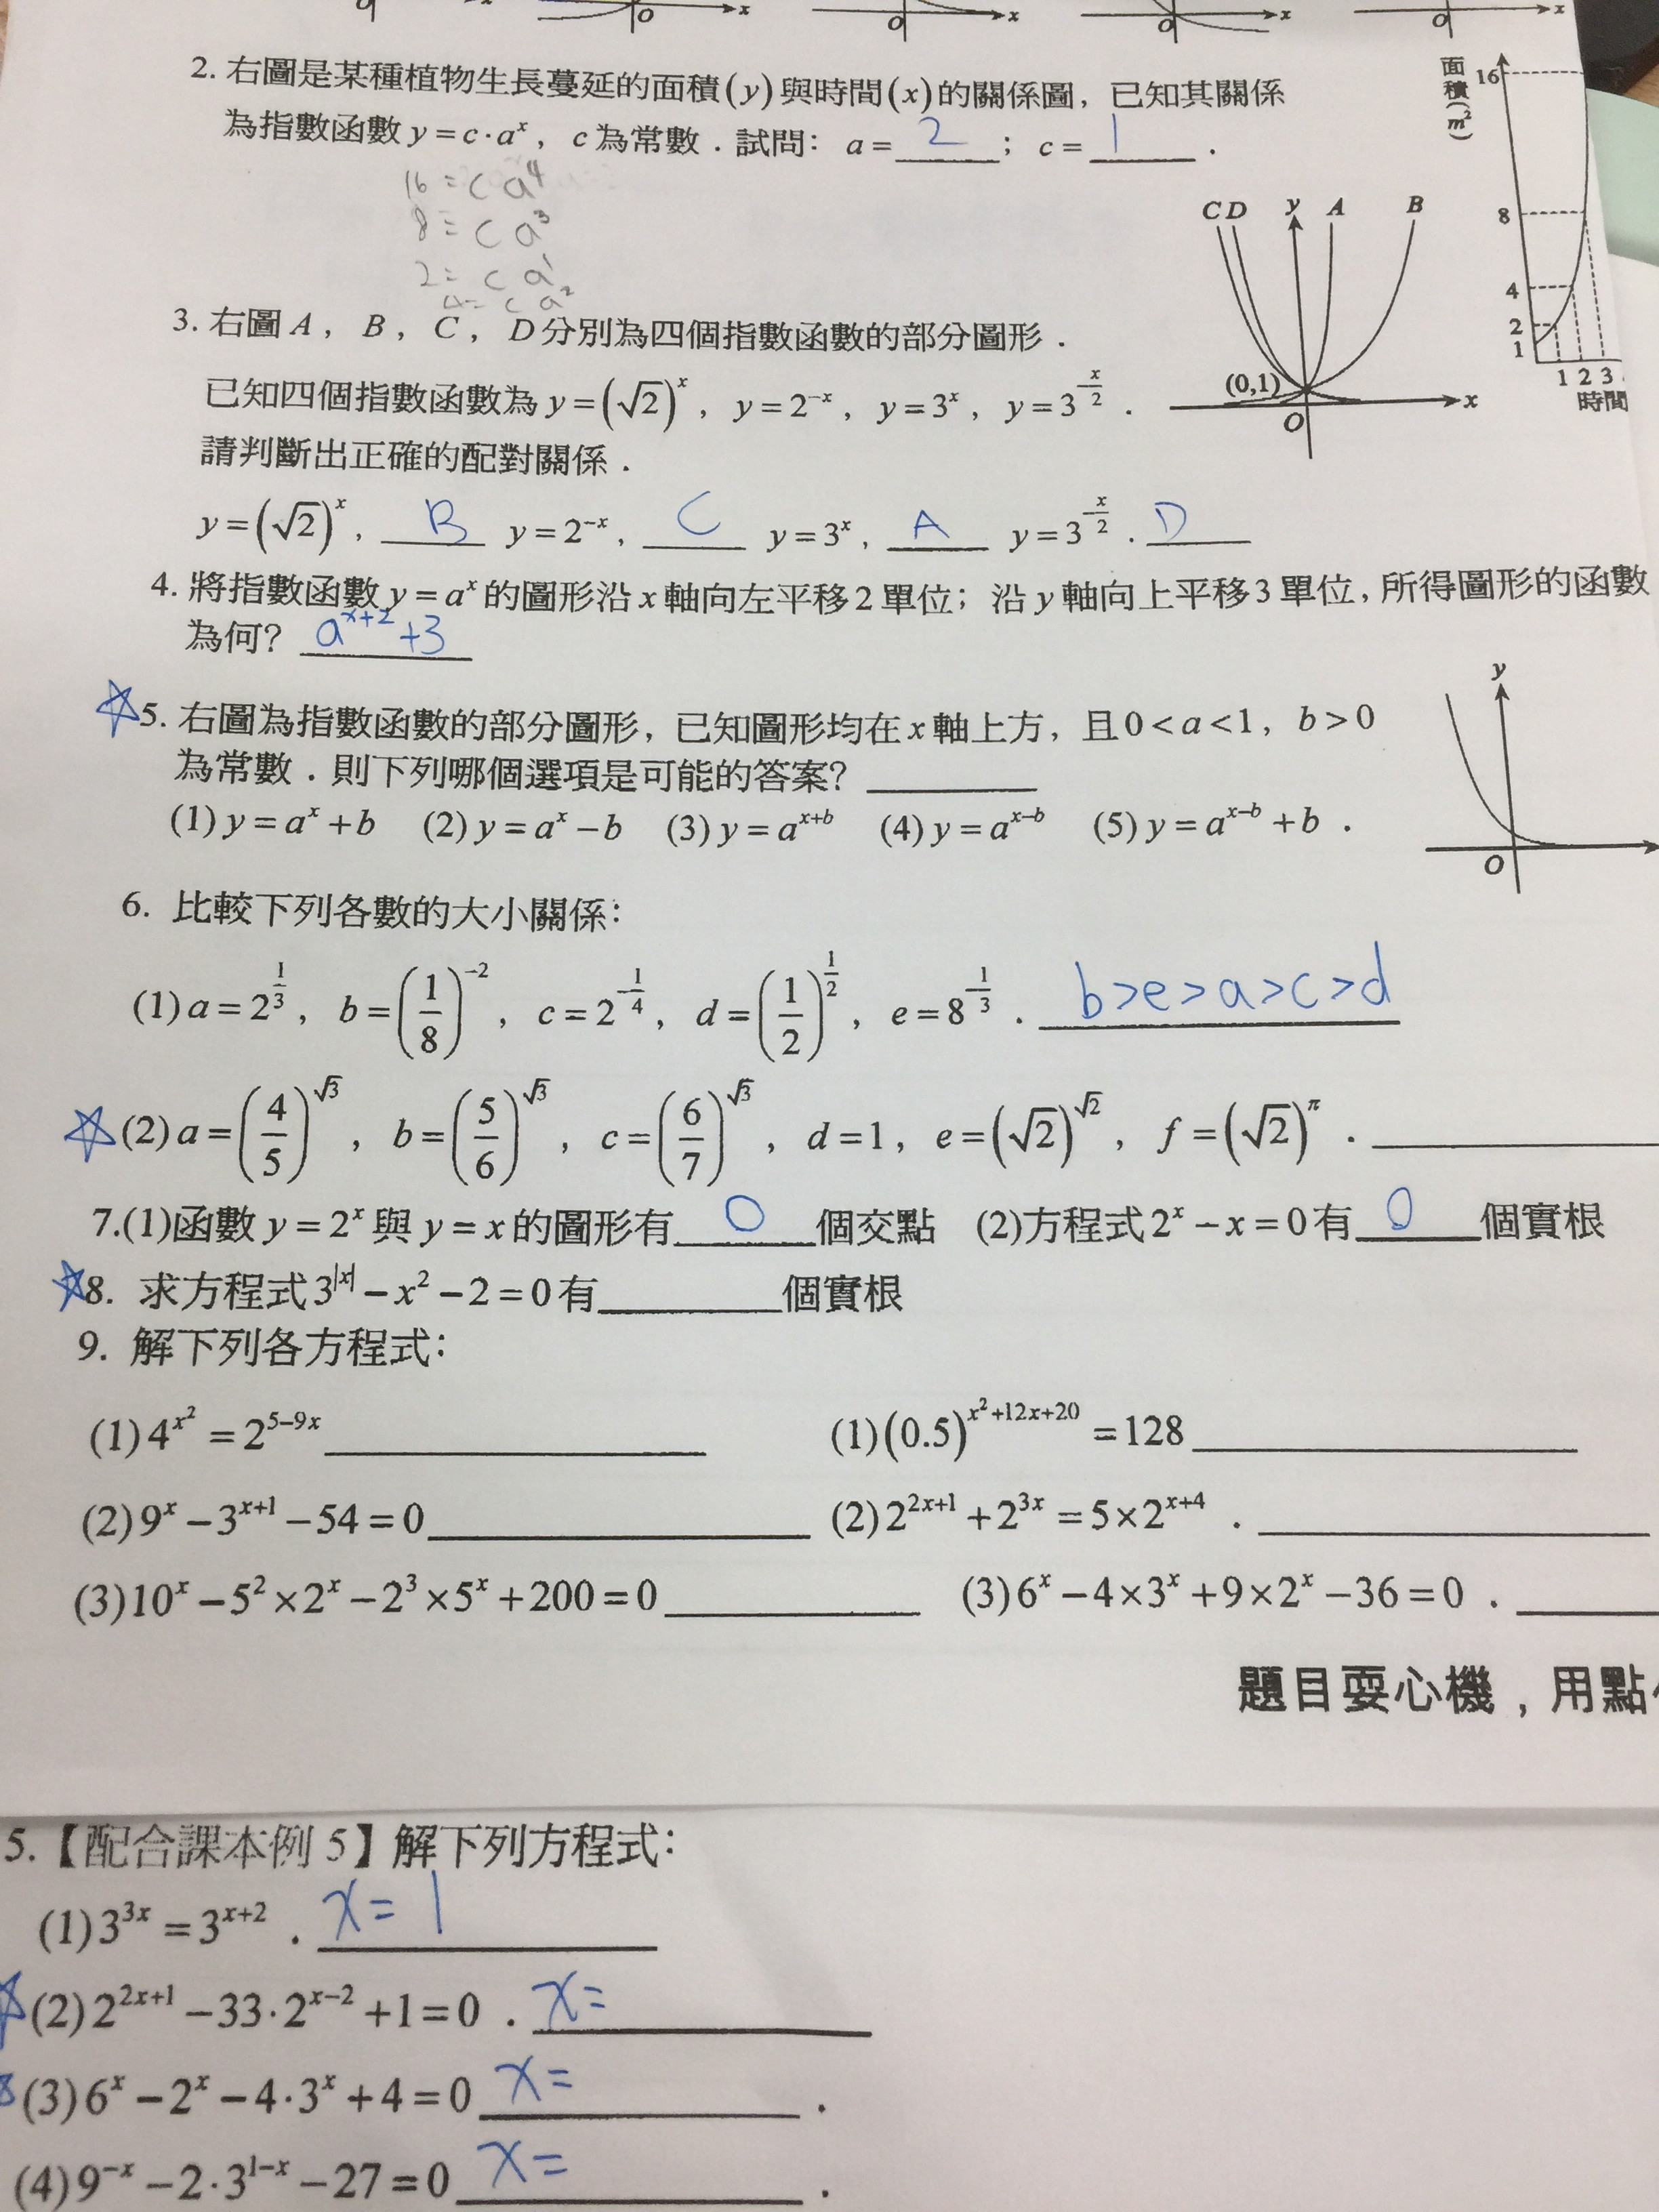 O x
O x
O x
O x
2. 右圖是某種植物生長蔓延的面積(y)與時間(x)的關係圖，已知其關係
為指數函數 y = c · a^x ，c 為常數．試問：a = 2 ；c = 1 ．
16 = c a^4
8 = c a^3
2 = c a^1
4 = c a^2
面積(m²)
16
8
4
2
1
1 2 3
時間
3. 右圖 A ， B ， C ， D 分別為四個指數函數的部分圖形．
已知四個指數函數為 y = (√2)^x ， y = 2^{-x} ， y = 3^x ， y = 3^{-x/2} ．
請判斷出正確的配對關係．
y = (√2)^x ， B y = 2^{-x} ， C y = 3^x ， A y = 3^{-x/2} ． D
C D y A B
(0,1)
O x
4. 將指數函數 y = a^x 的圖形沿 x 軸向左平移 2 單位；沿 y 軸向上平移 3 單位，所得圖形的函數
為何？ a^{x+2} +3
☆5. 右圖為指數函數的部分圖形，已知圖形均在 x 軸上方，且 0 < a < 1，b > 0
為常數．則下列哪個選項是可能的答案？
(1) y = a^x + b (2) y = a^x − b (3) y = a^{x+b} (4) y = a^{x−b} (5) y = a^{x−b} + b ．
y
O
6. 比較下列各數的大小關係：
(1) a = 2^{1/3} ， b = (1/8)^{-2} ， c = 2^{-1/4} ， d = (1/2)^{1/2} ， e = 8^{1/3} ． b>e>a>c>d
☆(2) a = (4/5)^{√3} ， b = (5/6)^{√3} ， c = (6/7)^{√3} ， d = 1， e = (√2)^{√2} ， f = (√2)^π ．
7.(1)函數 y = 2^x 與 y = x 的圖形有 0 個交點 (2)方程式 2^x − x = 0 有 0 個實根
☆8. 求方程式 3^{|x|} − x² − 2 = 0 有 個實根
9. 解下列各方程式：
(1) 4^{x²} = 2^{5−9x} (1) (0.5)^{x²+12x+20} = 128
(2) 9^x − 3^{x+1} − 54 = 0 (2) 2^{2x+1} + 2^{3x} = 5×2^{x+4} ．
(3) 10^x − 5²×2^x − 2³×5^x + 200 = 0 (3) 6^x − 4×3^x + 9×2^x − 36 = 0 ．
題目耍心機，用點
5.【配合課本例 5】解下列方程式：
(1) 3^{3x} = 3^{x+2} ． x = 1
☆(2) 2^{2x+1} − 33·2^{x−2} + 1 = 0 ． x =
(3) 6^x − 2^x − 4·3^x + 4 = 0 x = ．
(4) 9^{-x} − 2·3^{1−x} − 27 = 0 x = ．